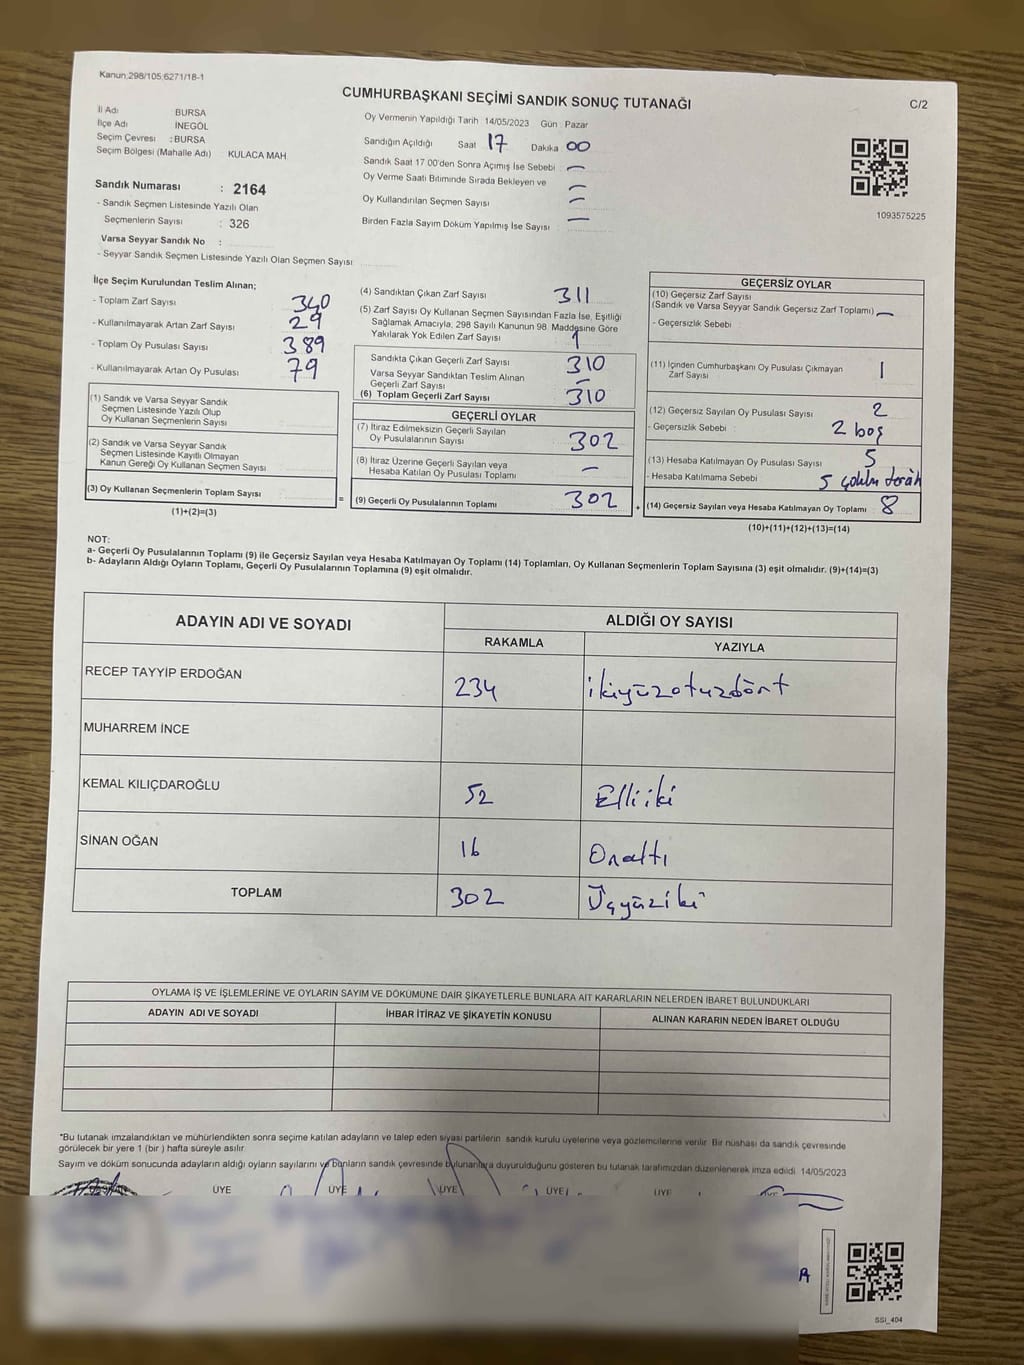 Kanun:298/105;6271/18-1
CUMHURBAŞKANI SEÇİMİ SANDIK SONUÇ TUTANAĞI
C/2
İl Adı BURSA
İlçe Adı İNEGÖL
Seçim Çevresi :BURSA
Seçim Bölgesi (Mahalle Adı) KULACA MAH.
Sandık Numarası : 2164
- Sandık Seçmen Listesinde Yazılı Olan
Seçmenlerin Sayısı : 326
Varsa Seyyar Sandık No :
- Seyyar Sandık Seçmen Listesinde Yazılı Olan Seçmen Sayısı
Oy Vermenin Yapıldığı Tarih 14/05/2023 Gün Pazar
Sandığın Açıldığı Saat 17 Dakika 00
Sandık Saat 17 00'den Sonra Açımış İse Sebebi —
Oy Verme Saati Bitiminde Sırada Bekleyen ve —
Oy Kullandırılan Seçmen Sayısı —
Birden Fazla Sayım Döküm Yapılmış İse Sayısı —
1093575225
İlçe Seçim Kurulundan Teslim Alınan;
- Toplam Zarf Sayısı 340
- Kullanılmayarak Artan Zarf Sayısı 29
- Toplam Oy Pusulası Sayısı 389
- Kullanılmayarak Artan Oy Pusulası 79
(1) Sandık ve Varsa Seyyar Sandık
Seçmen Listesinde Yazılı Olup
Oy Kullanan Seçmenlerin Sayısı
(2) Sandık ve Varsa Seyyar Sandık
Seçmen Listesinde Kayıtlı Olmayan
Kanun Gereği Oy Kullanan Seçmen Sayısı
(3) Oy Kullanan Seçmenlerin Toplam Sayısı
(1)+(2)=(3)
=
(4) Sandıktan Çıkan Zarf Sayısı 311
(5) Zarf Sayısı Oy Kullanan Seçmen Sayısından Fazla İse, Eşitliği
Sağlamak Amacıyla, 298 Sayılı Kanunun 98. Maddesine Göre
Yakılarak Yok Edilen Zarf Sayısı 1
Sandıkta Çıkan Geçerli Zarf Sayısı 310
Varsa Seyyar Sandıktan Teslim Alınan
Geçerli Zarf Sayısı —
(6) Toplam Geçerli Zarf Sayısı 310
GEÇERLİ OYLAR
(7) İtiraz Edilmeksizin Geçerli Sayılan
Oy Pusulalarının Sayısı 302
(8) İtiraz Üzerine Geçerli Sayılan veya
Hesaba Katılan Oy Pusulası Toplamı —
(9) Geçerli Oy Pusulalarının Toplamı 302
+
GEÇERSİZ OYLAR
(10) Geçersiz Zarf Sayısı
(Sandık ve Varsa Seyyar Sandık Geçersiz Zarf Toplamı) —
- Geçersizlik Sebebi
(11) İçinden Cumhurbaşkanı Oy Pusulası Çıkmayan
Zarf Sayısı 1
(12) Geçersiz Sayılan Oy Pusulası Sayısı 2
- Geçersizlik Sebebi : 2 boş
(13) Hesaba Katılmayan Oy Pusulası Sayısı 5
- Hesaba Katılmama Sebebi 5
(14) Geçersiz Sayılan veya Hesaba Katılmayan Oy Toplamı 8
(10)+(11)+(12)+(13)=(14)
NOT:
a- Geçerli Oy Pusulalarının Toplamı (9) ile Geçersiz Sayılan veya Hesaba Katılmayan Oy Toplamı (14) Toplamları, Oy Kullanan Seçmenlerin Toplam Sayısına (3) eşit olmalıdır. (9)+(14)=(3)
b- Adayların Aldığı Oyların Toplamı, Geçerli Oy Pusulalarının Toplamına (9) eşit olmalıdır.
ADAYIN ADI VE SOYADI
ALDIĞI OY SAYISI
RAKAMLA YAZIYLA
RECEP TAYYİP ERDOĞAN 234 ikiyüzotuzdört
MUHARREM İNCE
KEMAL KILIÇDAROĞLU 52 Elliiki
SİNAN OĞAN 16 Onaltı
TOPLAM 302 Üçyüziki
OYLAMA İŞ VE İŞLEMLERİNE VE OYLARIN SAYIM VE DÖKÜMÜNE DAİR ŞİKAYETLERLE BUNLARA AİT KARARLARIN NELERDEN İBARET BULUNDUKLARI
ADAYIN ADI VE SOYADI İHBAR İTİRAZ VE ŞİKAYETİN KONUSU ALINAN KARARIN NEDEN İBARET OLDUĞU
*Bu tutanak imzalandıktan ve mühürlendikten sonra seçime katılan adayların ve talep eden siyasi partilerin sandık kurulu üyelerine veya gözlemcilerine verilir. Bir nüshası da sandık çevresinde
görülecek bir yere 1 (bir ) hafta süreyle asılır.
Sayım ve döküm sonucunda adayların aldığı oyların sayılarını ve bunların sandık çevresinde bulunanlara duyurulduğunu gösteren bu tutanak tarafımızdan düzenlenerek imza edildi 14/05/2023
ÜYE ÜYE ÜYE ÜYE ÜYE
A
SSI_404